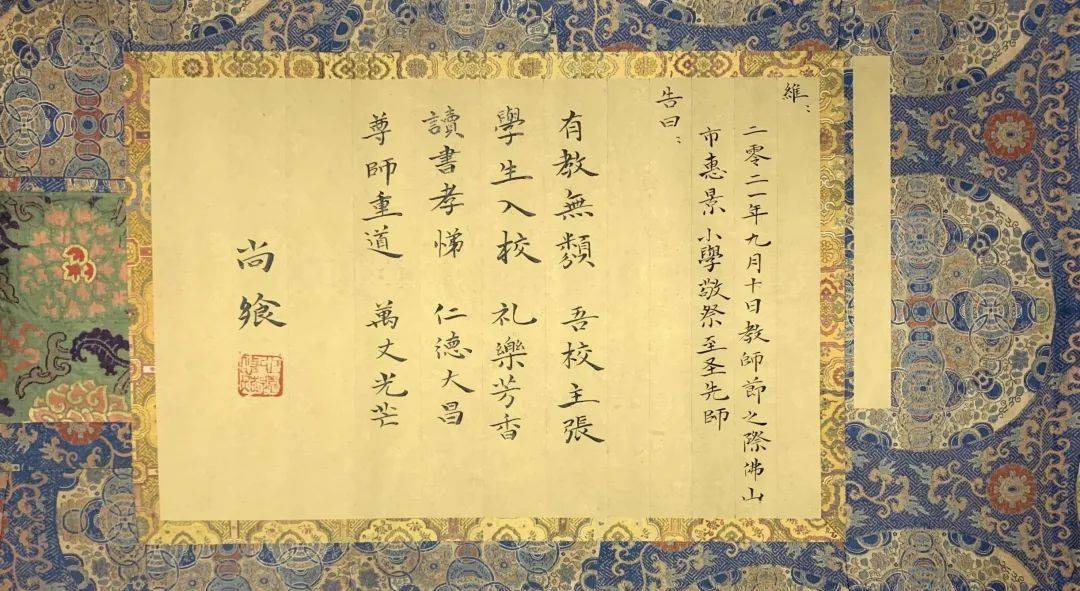 維：
二零二一年九月十日教師節之際佛山
市惠景小學敬祭至圣先師
告曰：
有教無類 吾校主張
學生入校 礼樂芳香
讀書孝悌 仁德大昌
尊師重道 萬丈光芒
尚饗